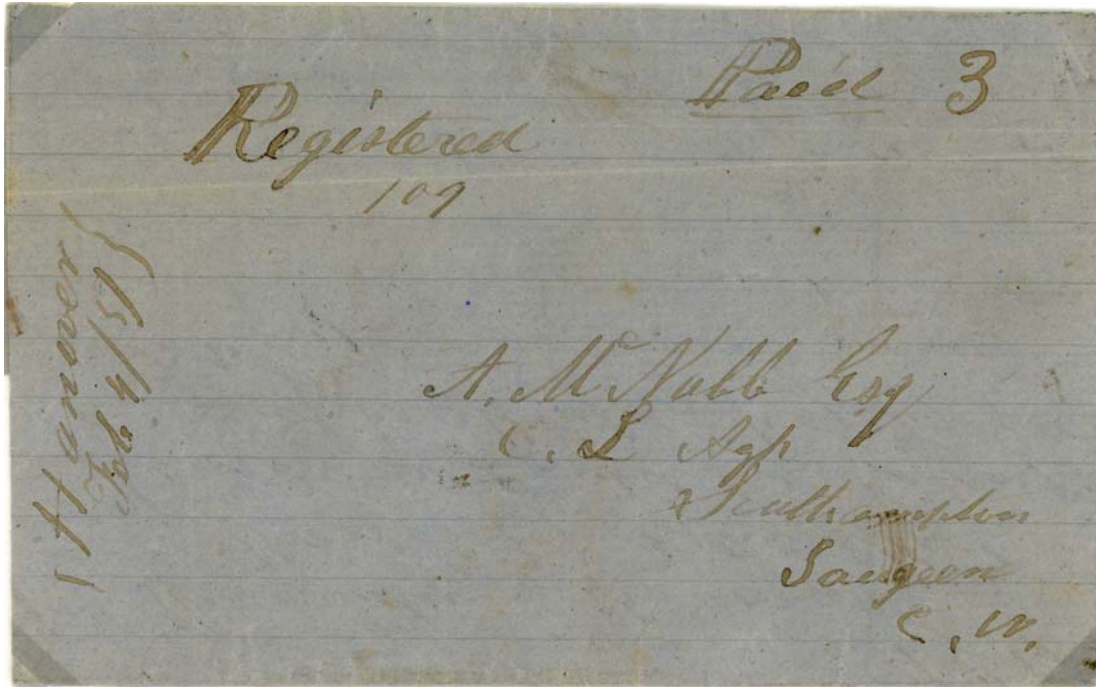 Paid 3
Registered
109
Hanover
Feb 4/57
A. McNabb Esq
C. L Agt
Southampton
Saugeen
C. W.